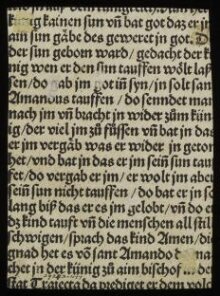 nig kainen sun vñ bat got daz er jn
ain sun gäbe des geweret jn got. D
der sun geborn ward / gedacht der k
nig wen er den sun tauffen wölt laß
sen / do gab jm got in syn / jn solt san
Amandus tauffen / do senndet man
nach jm vñ bracht jn wider zum kün
ig / der viel jm zů füssen vñ bat jn da
er jm vergäb was er wider jn geton
het / vnd bat jn das er jm sein sun tau
fet / do vergab er jm / er wolt jm aber
sein sun nicht tauffen / do bat er jn so
lang biß das er es jm gelobt / vñ do e
dz kind taufft vñ die menschen all stil
schwigen / sprach das kind Amen / di
gnad het es võ sant Amando
chet jn der künig zů aim bischof
Traiecta da prediget er dem volc